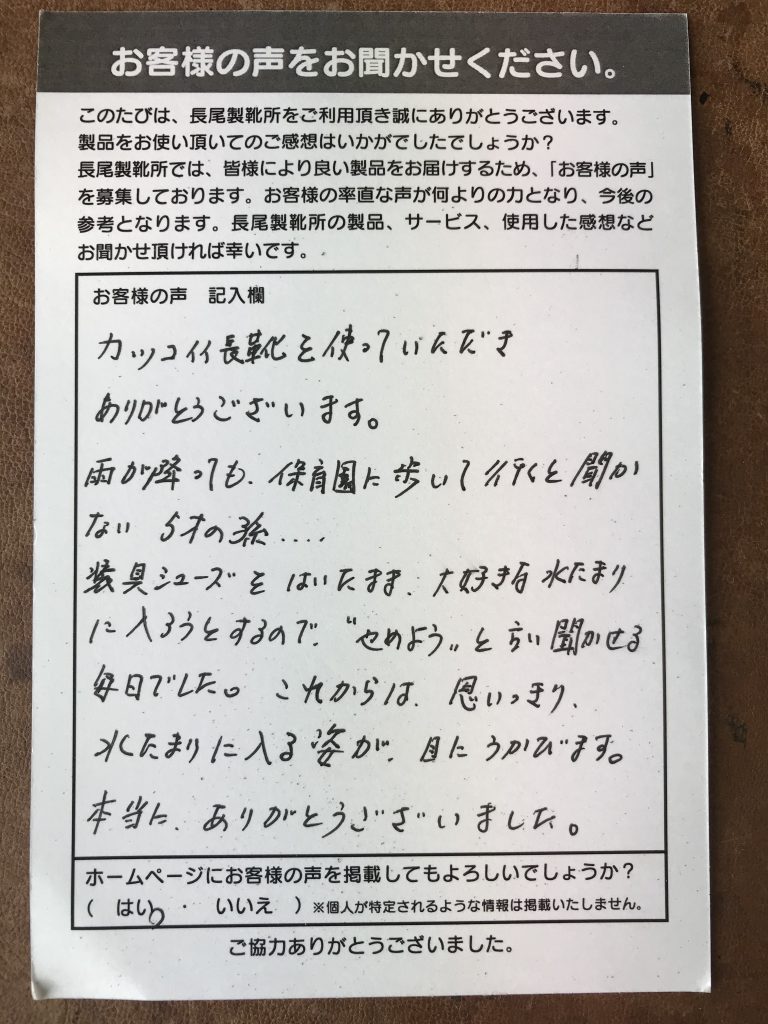 お客様の声をお聞かせください。
このたびは、長尾製靴所をご利用頂き誠にありがとうございます。
製品をお使い頂いてのご感想はいかがでしたでしょうか?
長尾製靴所では、皆様により良い製品をお届けするため、「お客様の声」
を募集しております。お客様の率直な声が何よりの力となり、今後の
参考となります。長尾製靴所の製品、サービス、使用した感想など
お聞かせ頂ければ幸いです。
お客様の声 記入欄
カッコイイ長靴を使っていただき
ありがとうございます。
雨が降っても、保育園に歩いて行くと聞か
ない 5才の孫....
装具シューズをはいたまま、大好きな水たまり
に入ろうとするので、“やめよう„と言い聞かせる
毎日でした。これからは、思いっきり、
水たまりに入る姿が、目にうかびます。
本当に、ありがとうございました。
ホームページにお客様の声を掲載してもよろしいでしょうか?
( はい ・ いいえ )※個人が特定されるような情報は掲載いたしません。
ご協力ありがとうございました。